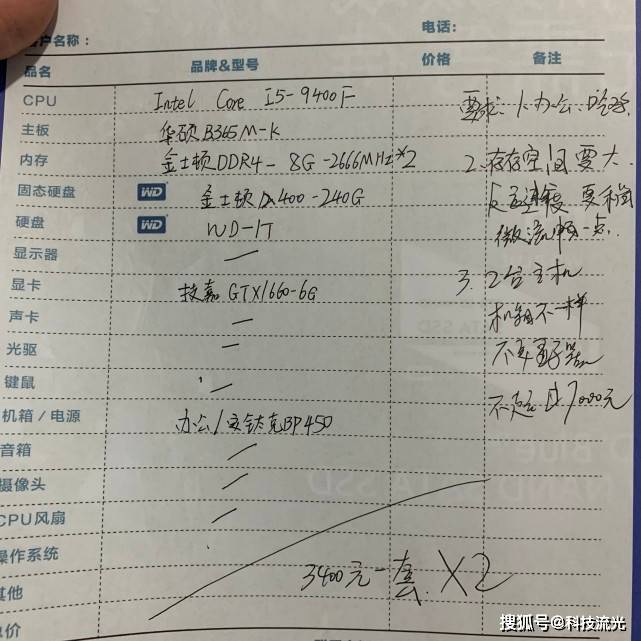 客户名称： 电话：
品名 品牌&型号 价格 备注
CPU Intel Core I5-9400F 要求：1.办公
主板 华硕B365M-K
内存 金士顿DDR4-8G-2666MHz*2 2.存存空间要大
固态硬盘 WD 金士顿A400-240G 反应速度要稍
硬盘 WD WD-1T 微流畅一点
显示器 —
显卡 技嘉GTX1660-6G 3.2台主机
声卡 — 机箱不一样
光驱 — 不要
键鼠 — 不超过7000元
机箱/电源 办公/安钛克BP450
音箱 —
摄像头 —
CPU风扇 —
操作系统
其他 3400元一套X2
总价
搜狐号@科技流光